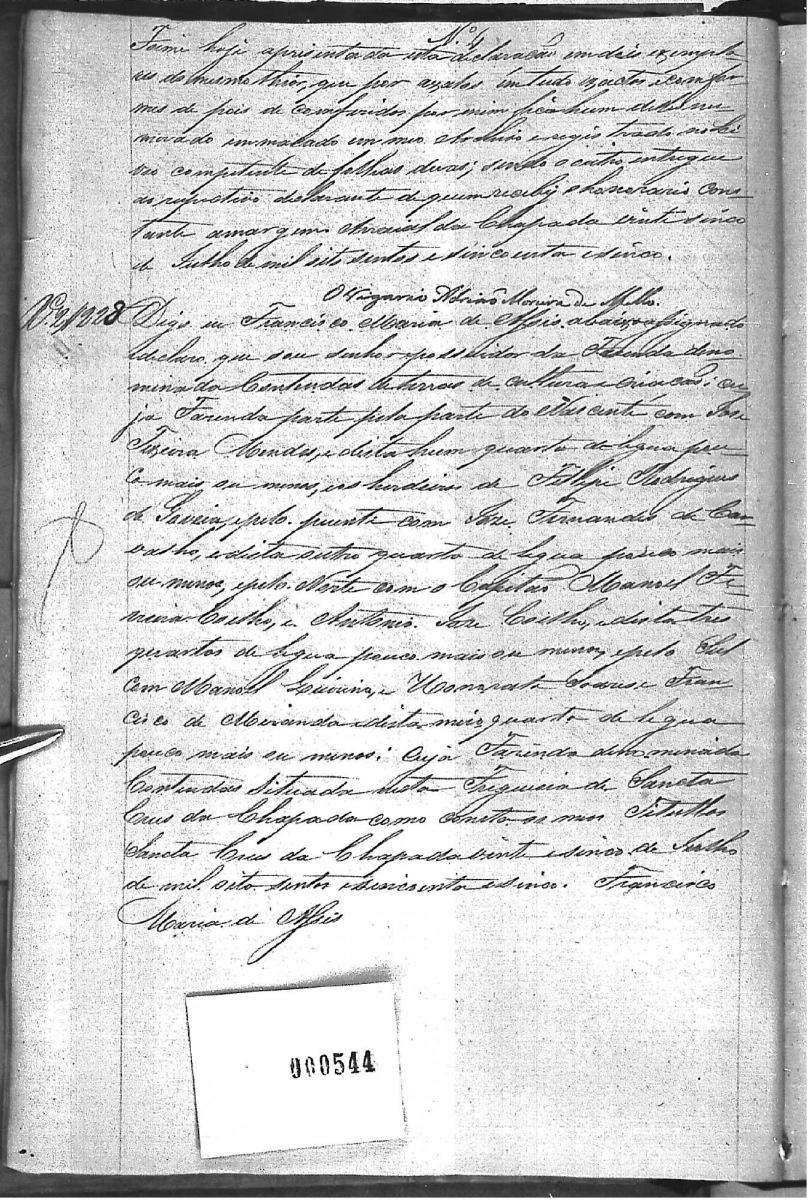 Nº 4
Foime hoje apresentada esta declaração em dois exempla-
res do mesmo thior, que por axalos em tudo exactos e confor-
mes de pois de comfiridos por mim fica hum delles nu
merado emmaçado em meu Archivo e registrado no Li
vro competente de folhas duas; sendo o outro entregue
ao respectivo declarante de quem recebi o honorario cons-
tante a margem Arraial da Chapada vinte sinco
de Julho de mil oito sentos e sincoenta e sinco.
O Vigario Adrião Moreira de Mello.
Nº 2 1328 Digo eu Francisco Maria de Assis abaixo assignado
declaro que sou senhor e possuidor da Fazenda deno-
minada Contendas de terras de cultura e criação; cu
ja Fazenda parte pela parte do Nascente com Joze
Teixeira Mendes, e dista hum quarto de legua pou
co mais ou menos, e os herdeiros de Fellipe Rodrigues
de e pelo puente com Joze Fernandes de Car-
valho, e dista outro quarto de legua pouco mais
ou menos, e pelo Norte com o Capitão Manoel Fe-
rreira Coelho, e Antonio Joze Coelho, e dista tres
quartos de legua pouco mais ou menos, e pelo Sul
com Manoel e Honorato Soares e Fran
cisco de Miranda e dista meio quarto de legua
pouco mais ou menos: cuja Fazenda denominada
Contendas situada nesta Freguezia de Sancta
Crus da Chapada como consta os meus Titullos
Sancta Crus da Chapada vinte e sinco de Julho
de mil oito sentos e sincoenta e sinco. Francisco
Maria de Assis
000544